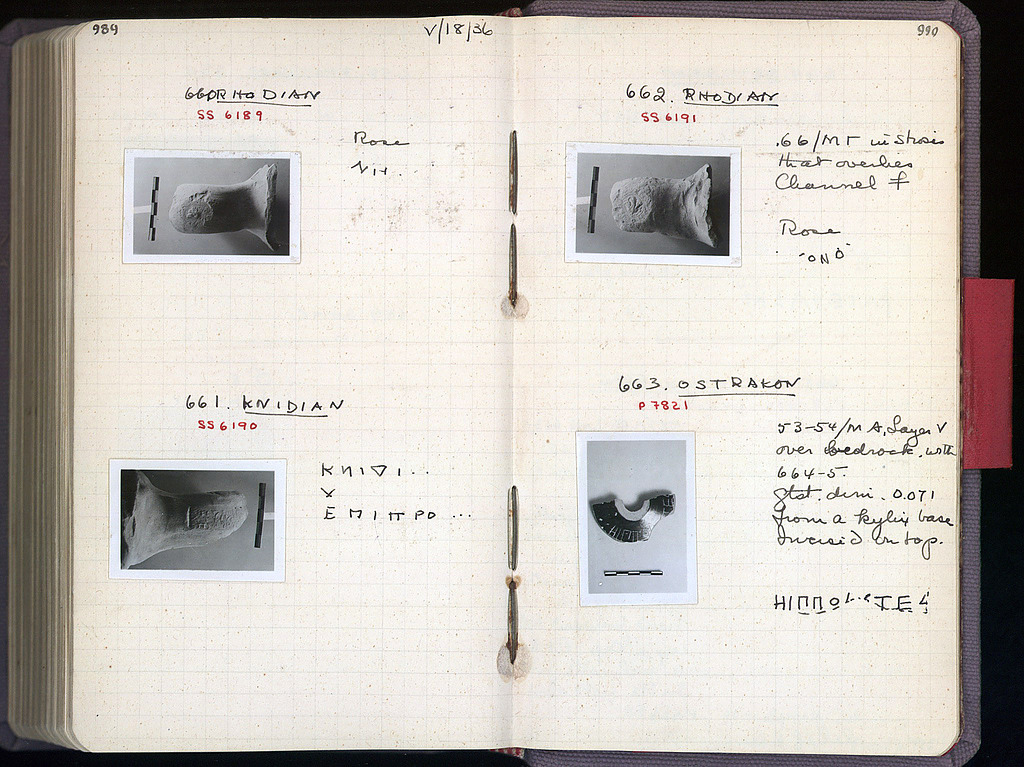 989
V/18/36
660 RHODIAN
SS 6189
Rose
661. KNIDIAN
SS 6190
ΚΝΙΔΙ...
ΕΠΙΠΡΟ...
990
662. RHODIAN
SS 6191
.66/ΜΓ in Strosis
that overlies
Channel f
Rose
663. OSTRAKON
P 7821
53-54/ΜΔ, Layer V
over bedrock, with
664-5.
gtst. dim. 0.071
from a kylix base
Incised on top.